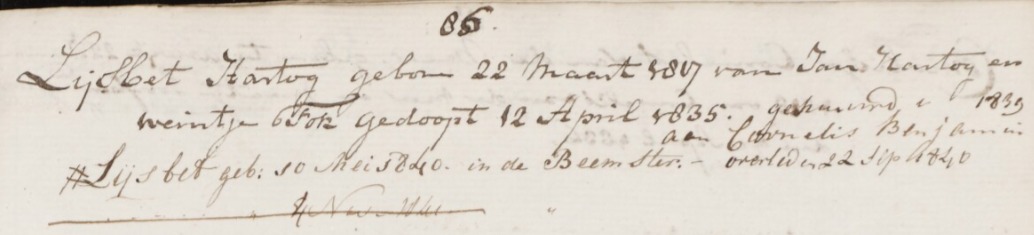 86.
Lijsbet Hartog gebore 22 Maart 1807 van Jan Hartog en
weintje Fok gedoopt 12 April 1835. gehuuwd 1839
aan Cornelis Benjamin
# Lijsbet geb: 10 Mei 1840. in de Beemster. - overleden 22 Sep 1840
4 Nov.